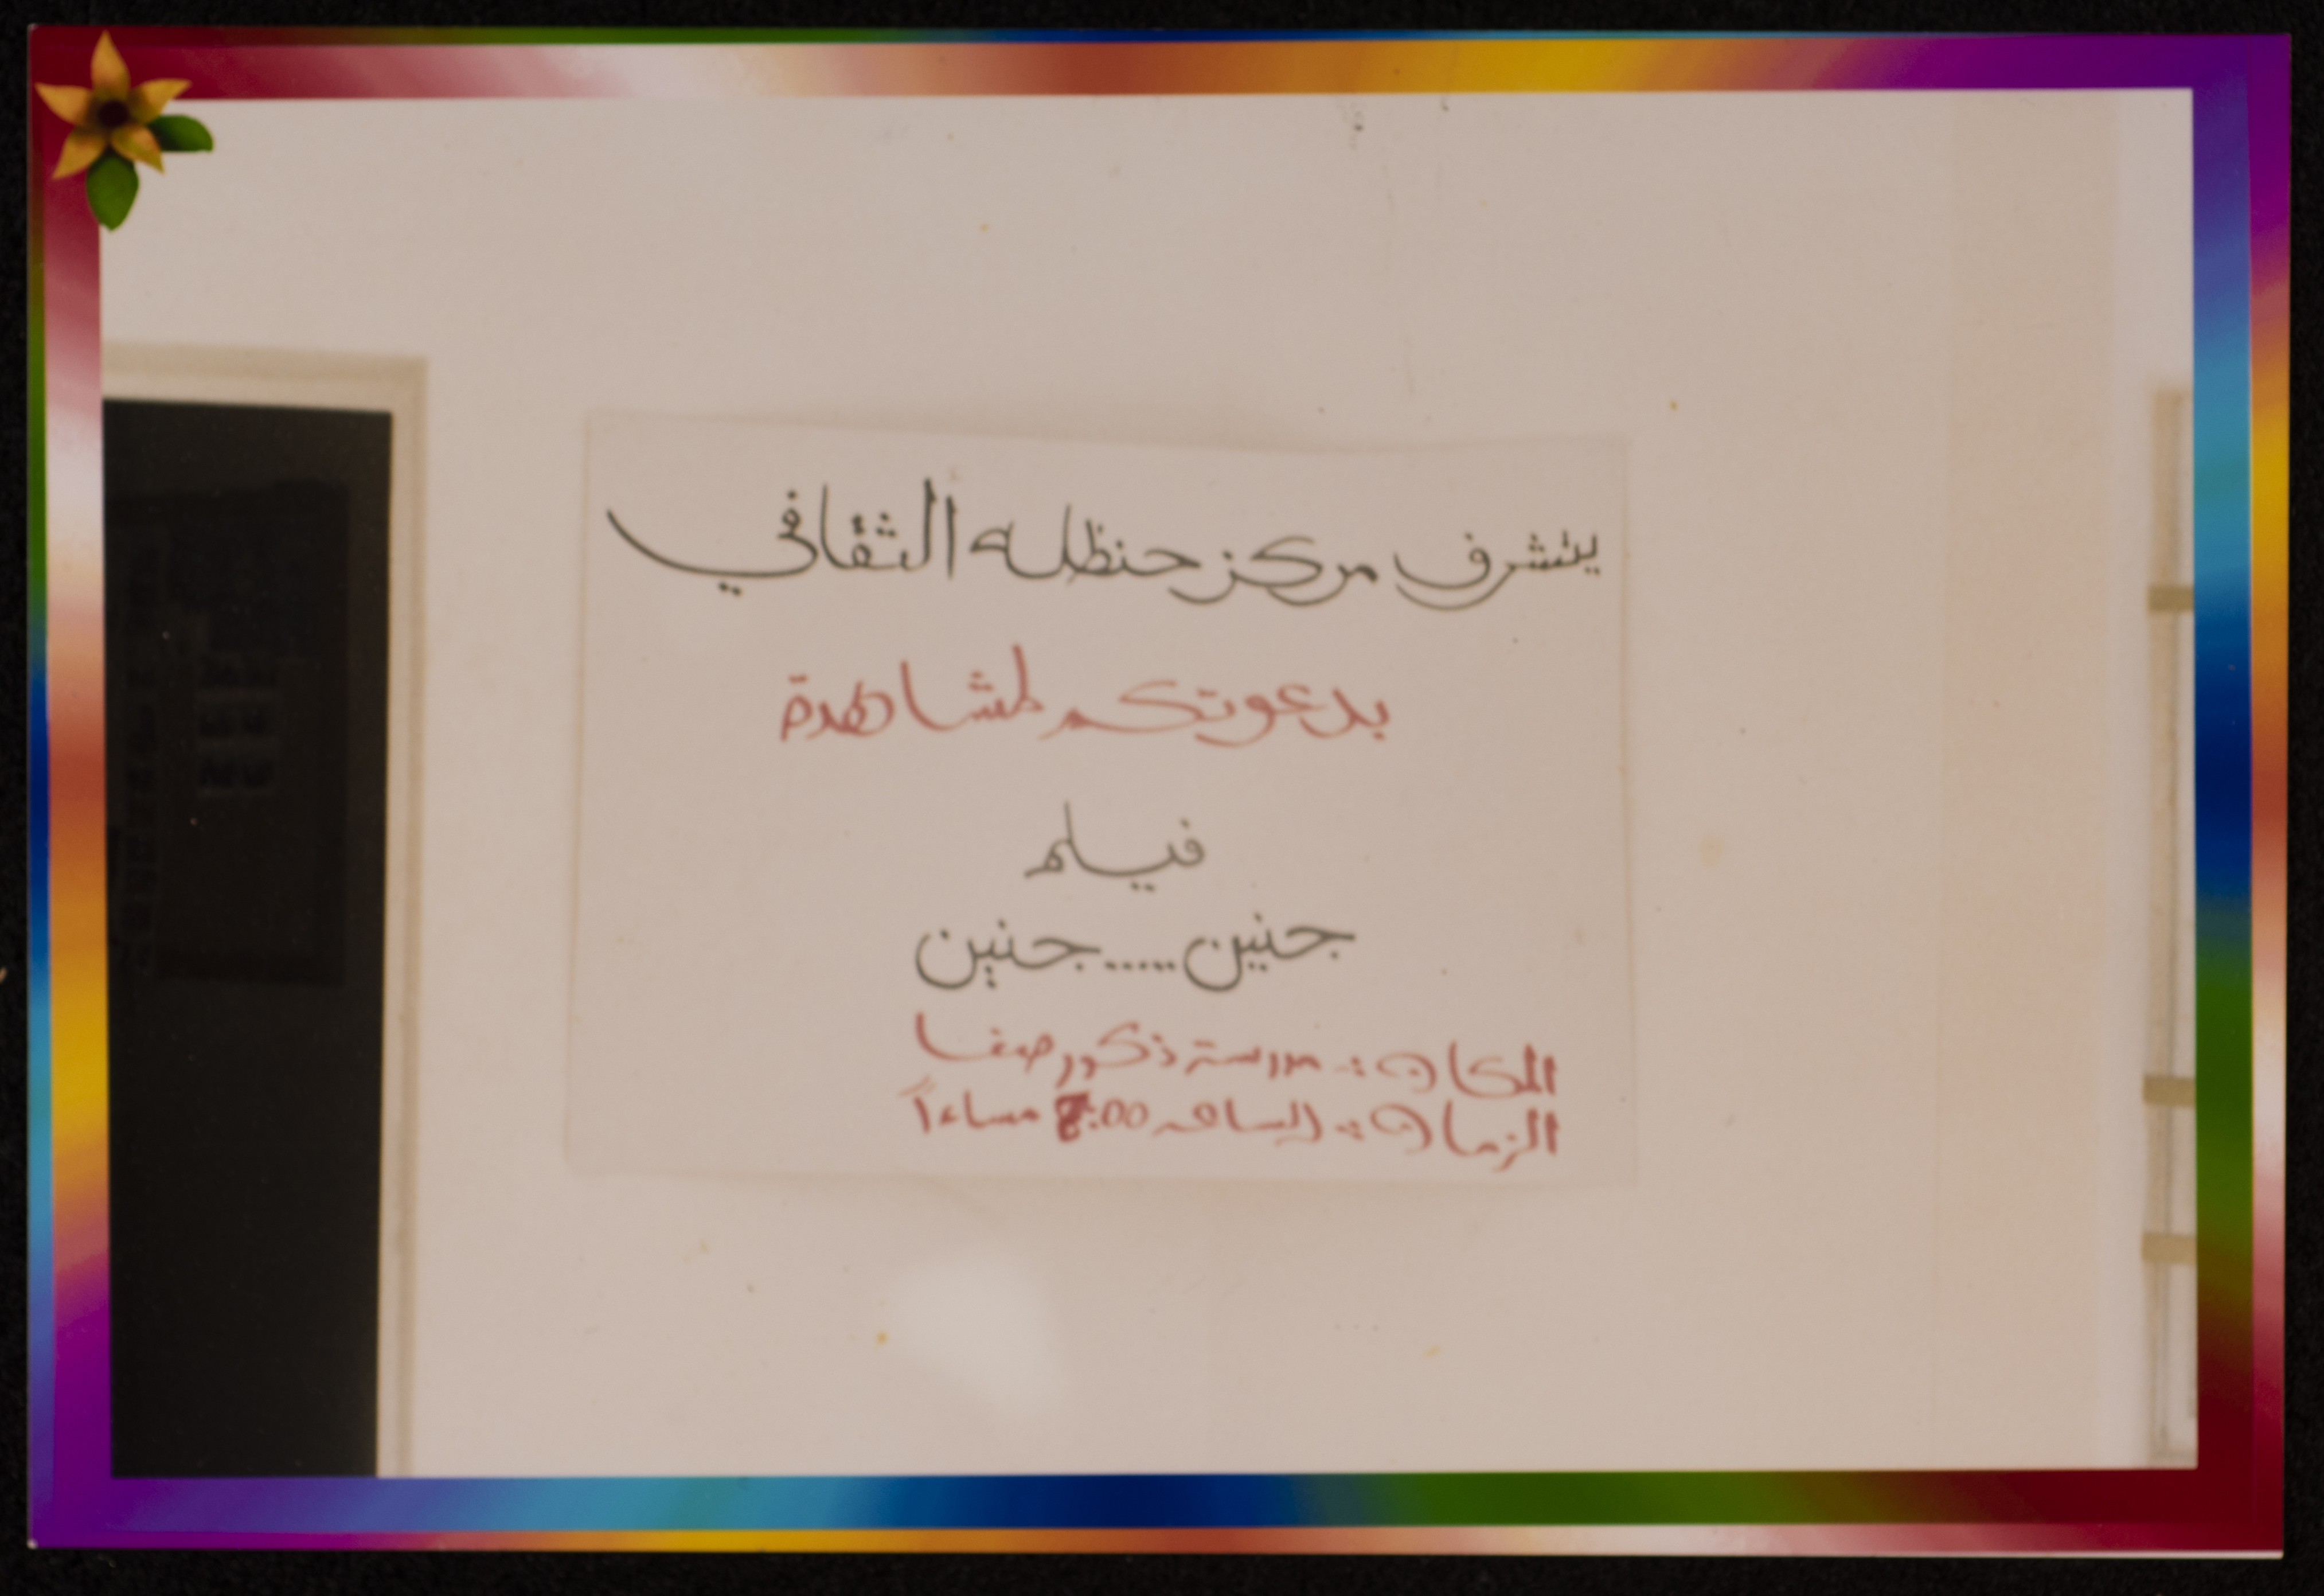 يتشرف مركز حنظله الثقافي
بدعوتكم لمشاهدة
فيلم
جنين.....جنين
المكان :- مدرسة ذكور صفا
الزمان :- الساعه 8:00 مساءاً